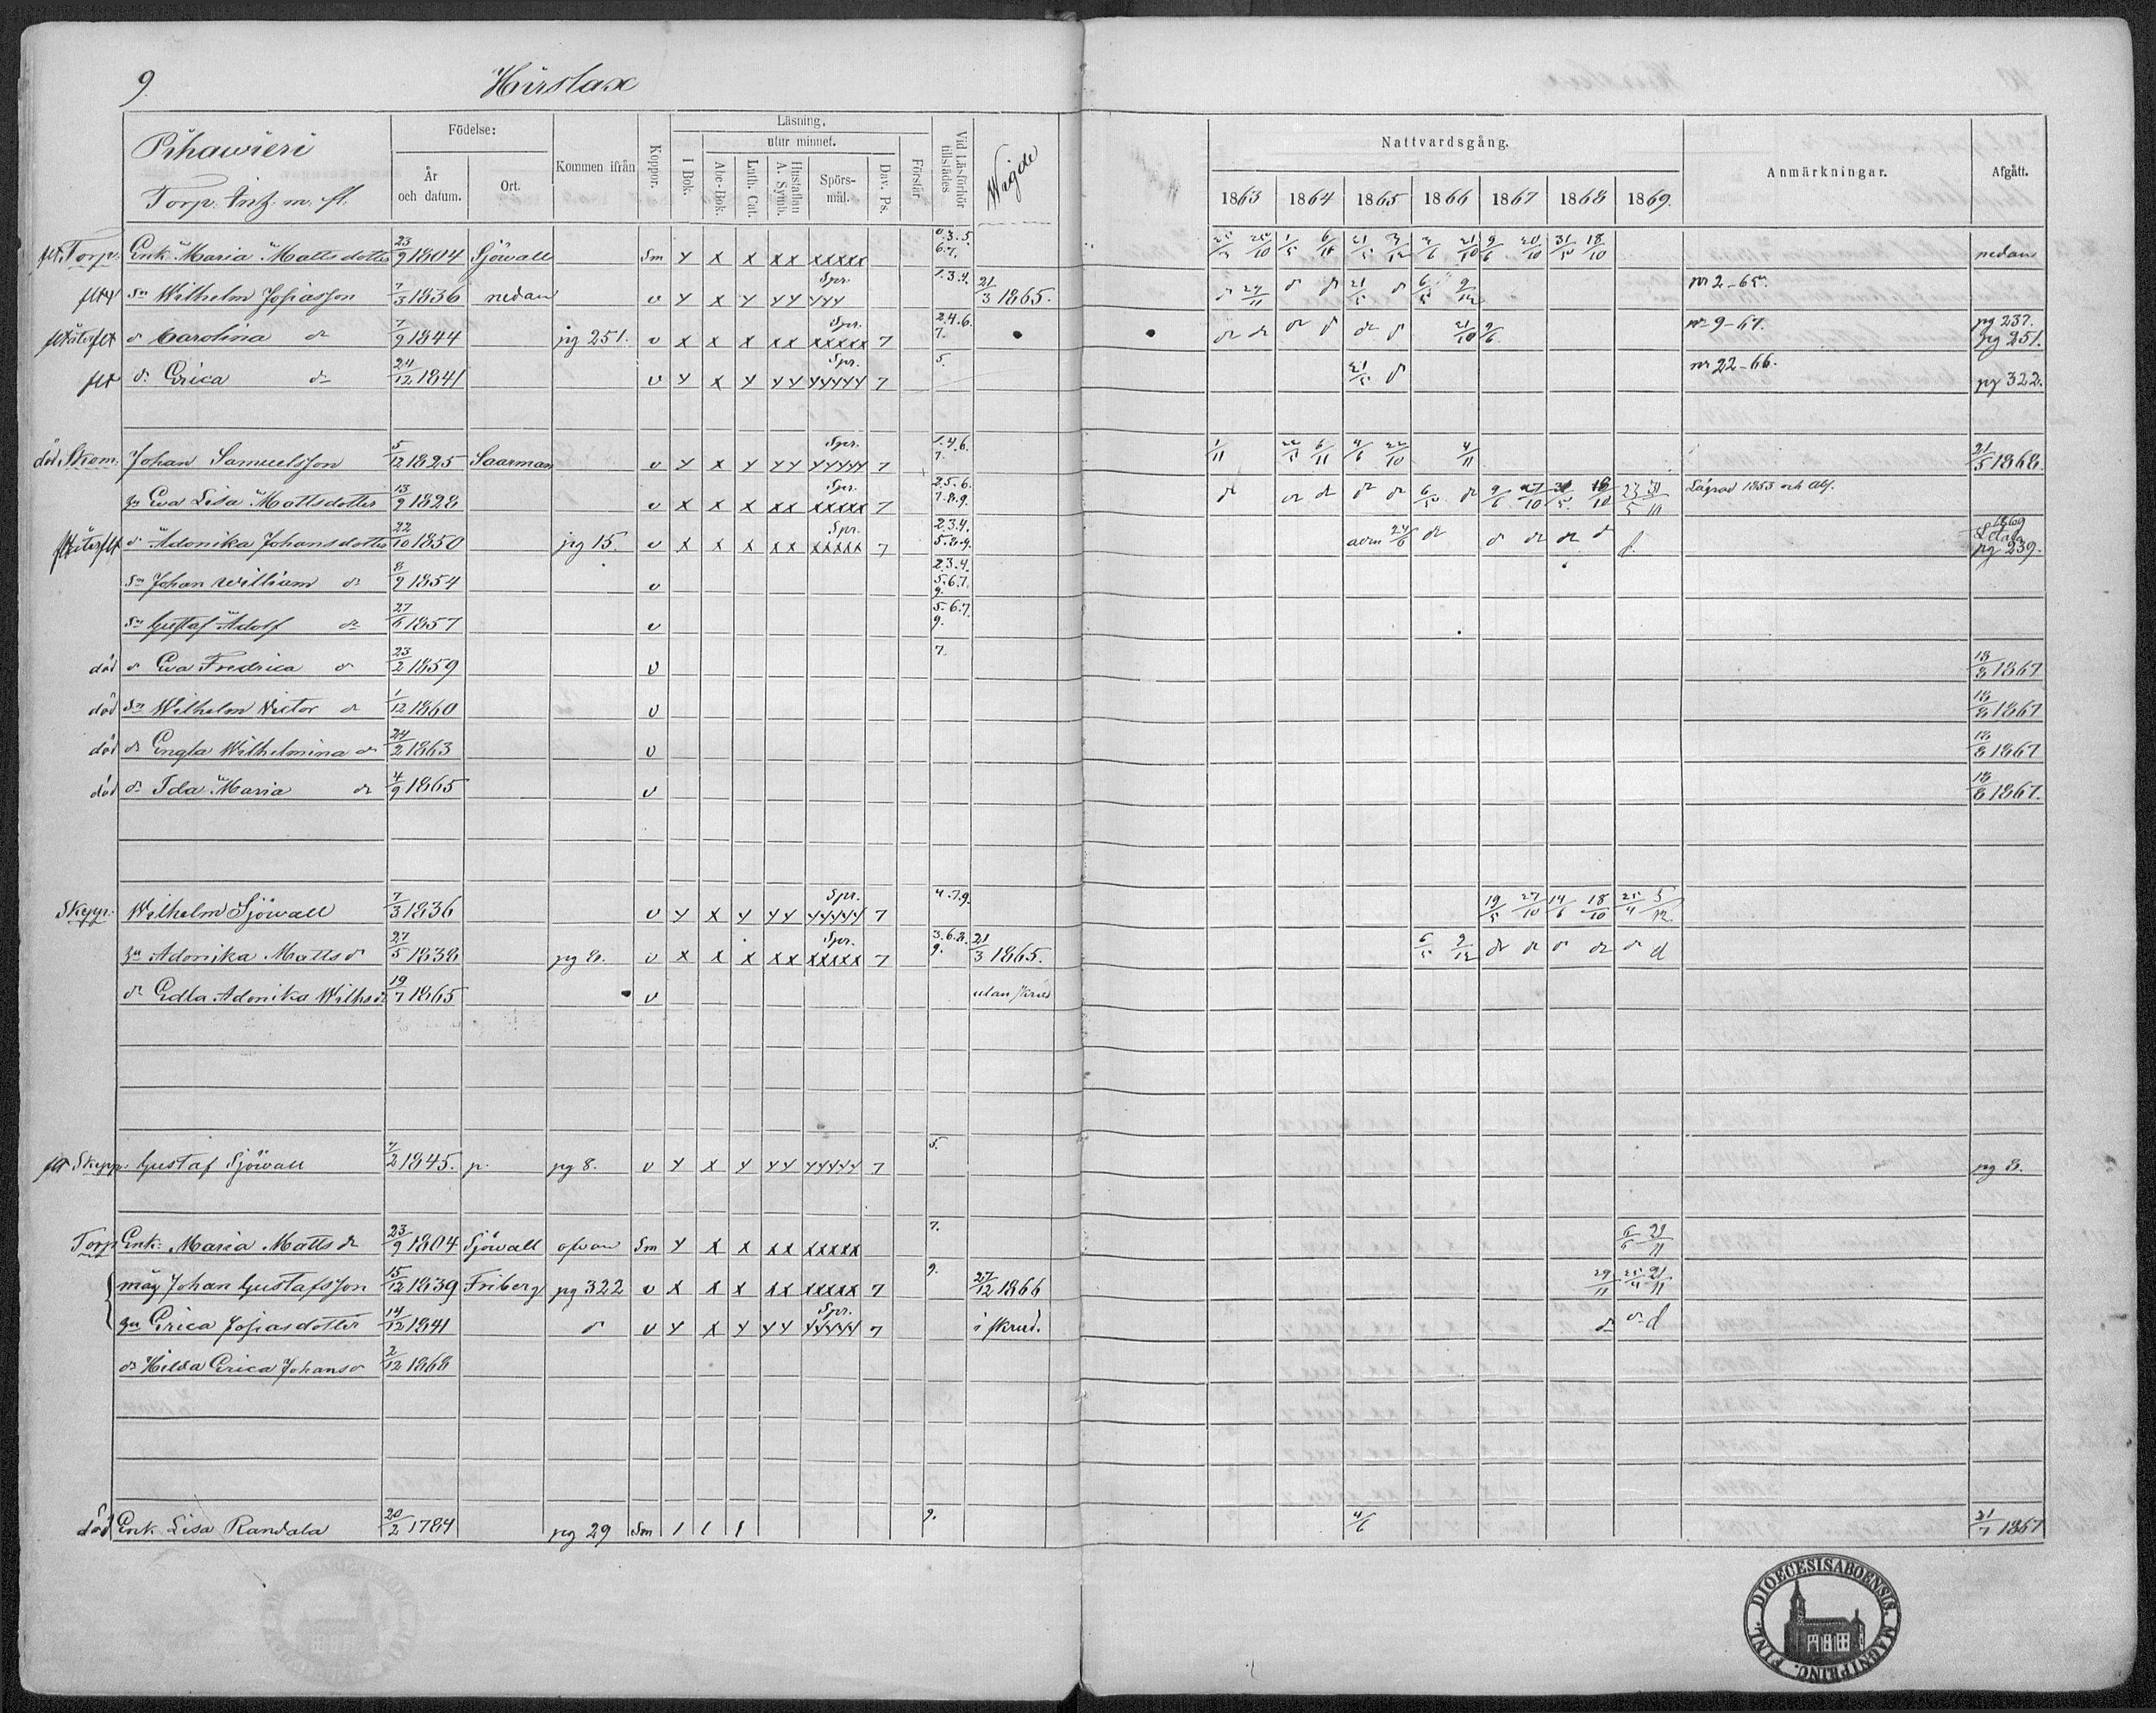 9. Hirslax
Pihawieri
Torp. Intz. m. fl.
Födelse:
År och datum.
Ort.
Kommen ifrån
Koppor.
Läsning,
utur minnet.
I Bok.
Abc-Bok.
Luth. Cat.
Hustaflan A. Symb.
Spörsmål.
Dav. Ps.
Förstår
Vid Läsförhör tillstädes
Wigde
Nattvardsgång.
1863 1864 1865 1866 1867 1868 1869.
Anmärkningar.
Afgått.
flt. Torp. Enk. Maria Mattsdotter 23/9 1804 Sjöwall Sm y x x xx xxxxx 0.3.5. 6.7. nedan
flt sn Wilhelm Josiasson 7/3 1836 nedan v y x y yy yyy Spr. 1.3.4. 21/3 1865. nr 2-65.
flt åter flt d Carolina dr 7/9 1844 pg 251. v x x x xx xxxxx Spr. 7 2.4.6. 7. nr 9-67. pg 237. pg 251.
flt dr Erica dr 24/12 1841 v y x y yy yyyyy Spr. 7 5. 21/5 nr 22-66. pg 322.
död. Skom. Johan Samuelsson 5/12 1825 Saarman v y x y yy yyyyy Spr. 7 1.4.6. 7. 21/5 1868.
hu Eva Lisa Mattsdotter 13/9 1828 v x x x xx xxxxx Spr. 7 2.5.6. 7.8.9. Lägrad 1853 och Abs.
flt åter flt dr Adonika Johansdotter 22/10 1850 pg 15. v x x x xx xxxxx Spr. 7 2.3.4. 5.8.9. adm 24/6 1869 pg 239.
sn Johan William dr 8/9 1854 v 2.3.4. 5.6.7. 9.
sn Gustaf Adolf dr 27/6 1857 v 5.6.7. 9.
död dr Eva Fredrica dr 23/2 1859 v 7. 18/8 1867
död sn Wilhelm Victor dr 1/12 1860 v 18/8 1867
död dr Engla Wilhelmina dr 24/2 1863 v 18/8 1867
död dr Ida Maria dr 4/9 1865 v 18/8 1867.
Skepp. Wilhelm Sjöwall 7/3 1836 v y x y yy yyyyy Spr. 7 4.7.9. 19/5 27/10 14/6 18/10 25/4 5/12
hu Adonika Matts dr 27/5 1838 pg 8. v x x x xx xxxxx Spr. 7 3.6.8. 9. 21/3 1865. 6/5 9/12
dr Edla Adonika Wilhs dr 19/7 1865 v utan skrud
flt Skepp. Gustaf Sjöwall 7/2 1845. p. pg 8. v y x y yy yyyyy 7 5. pg 8.
Torp Enk. Maria Matts dr 23/9 1804 Sjöwall ofvan Sm y x x xx xxxxx 7. 6/6 21/11
måg Johan Gustafsson 15/12 1839 Friberg pg 322 v x x x xx xxxxx 7 9. 27/12 1866 29/11 25/4 21/11
hu Erica Josiasdotter 14/12 1841 v y x y yy yyyyy Spr. 7 i skrud.
dr Hilda Erica Johans dr 2/12 1868
död Enk. Lisa Randala 20/2 1784 pg 29 Sm 1 1 1 9. 4/6 21/7 1867
DIOECESIS ABOENSIS. MAGNI PRINC. FINL.